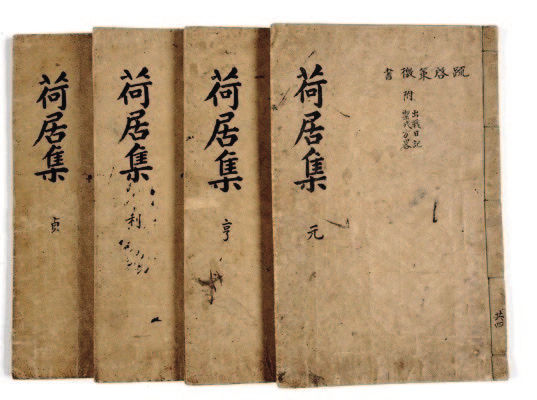 疏啓策檄書
附
出戰日記
荷居集
元
共四
荷居集
亨
荷居集
利
荷居集
貞